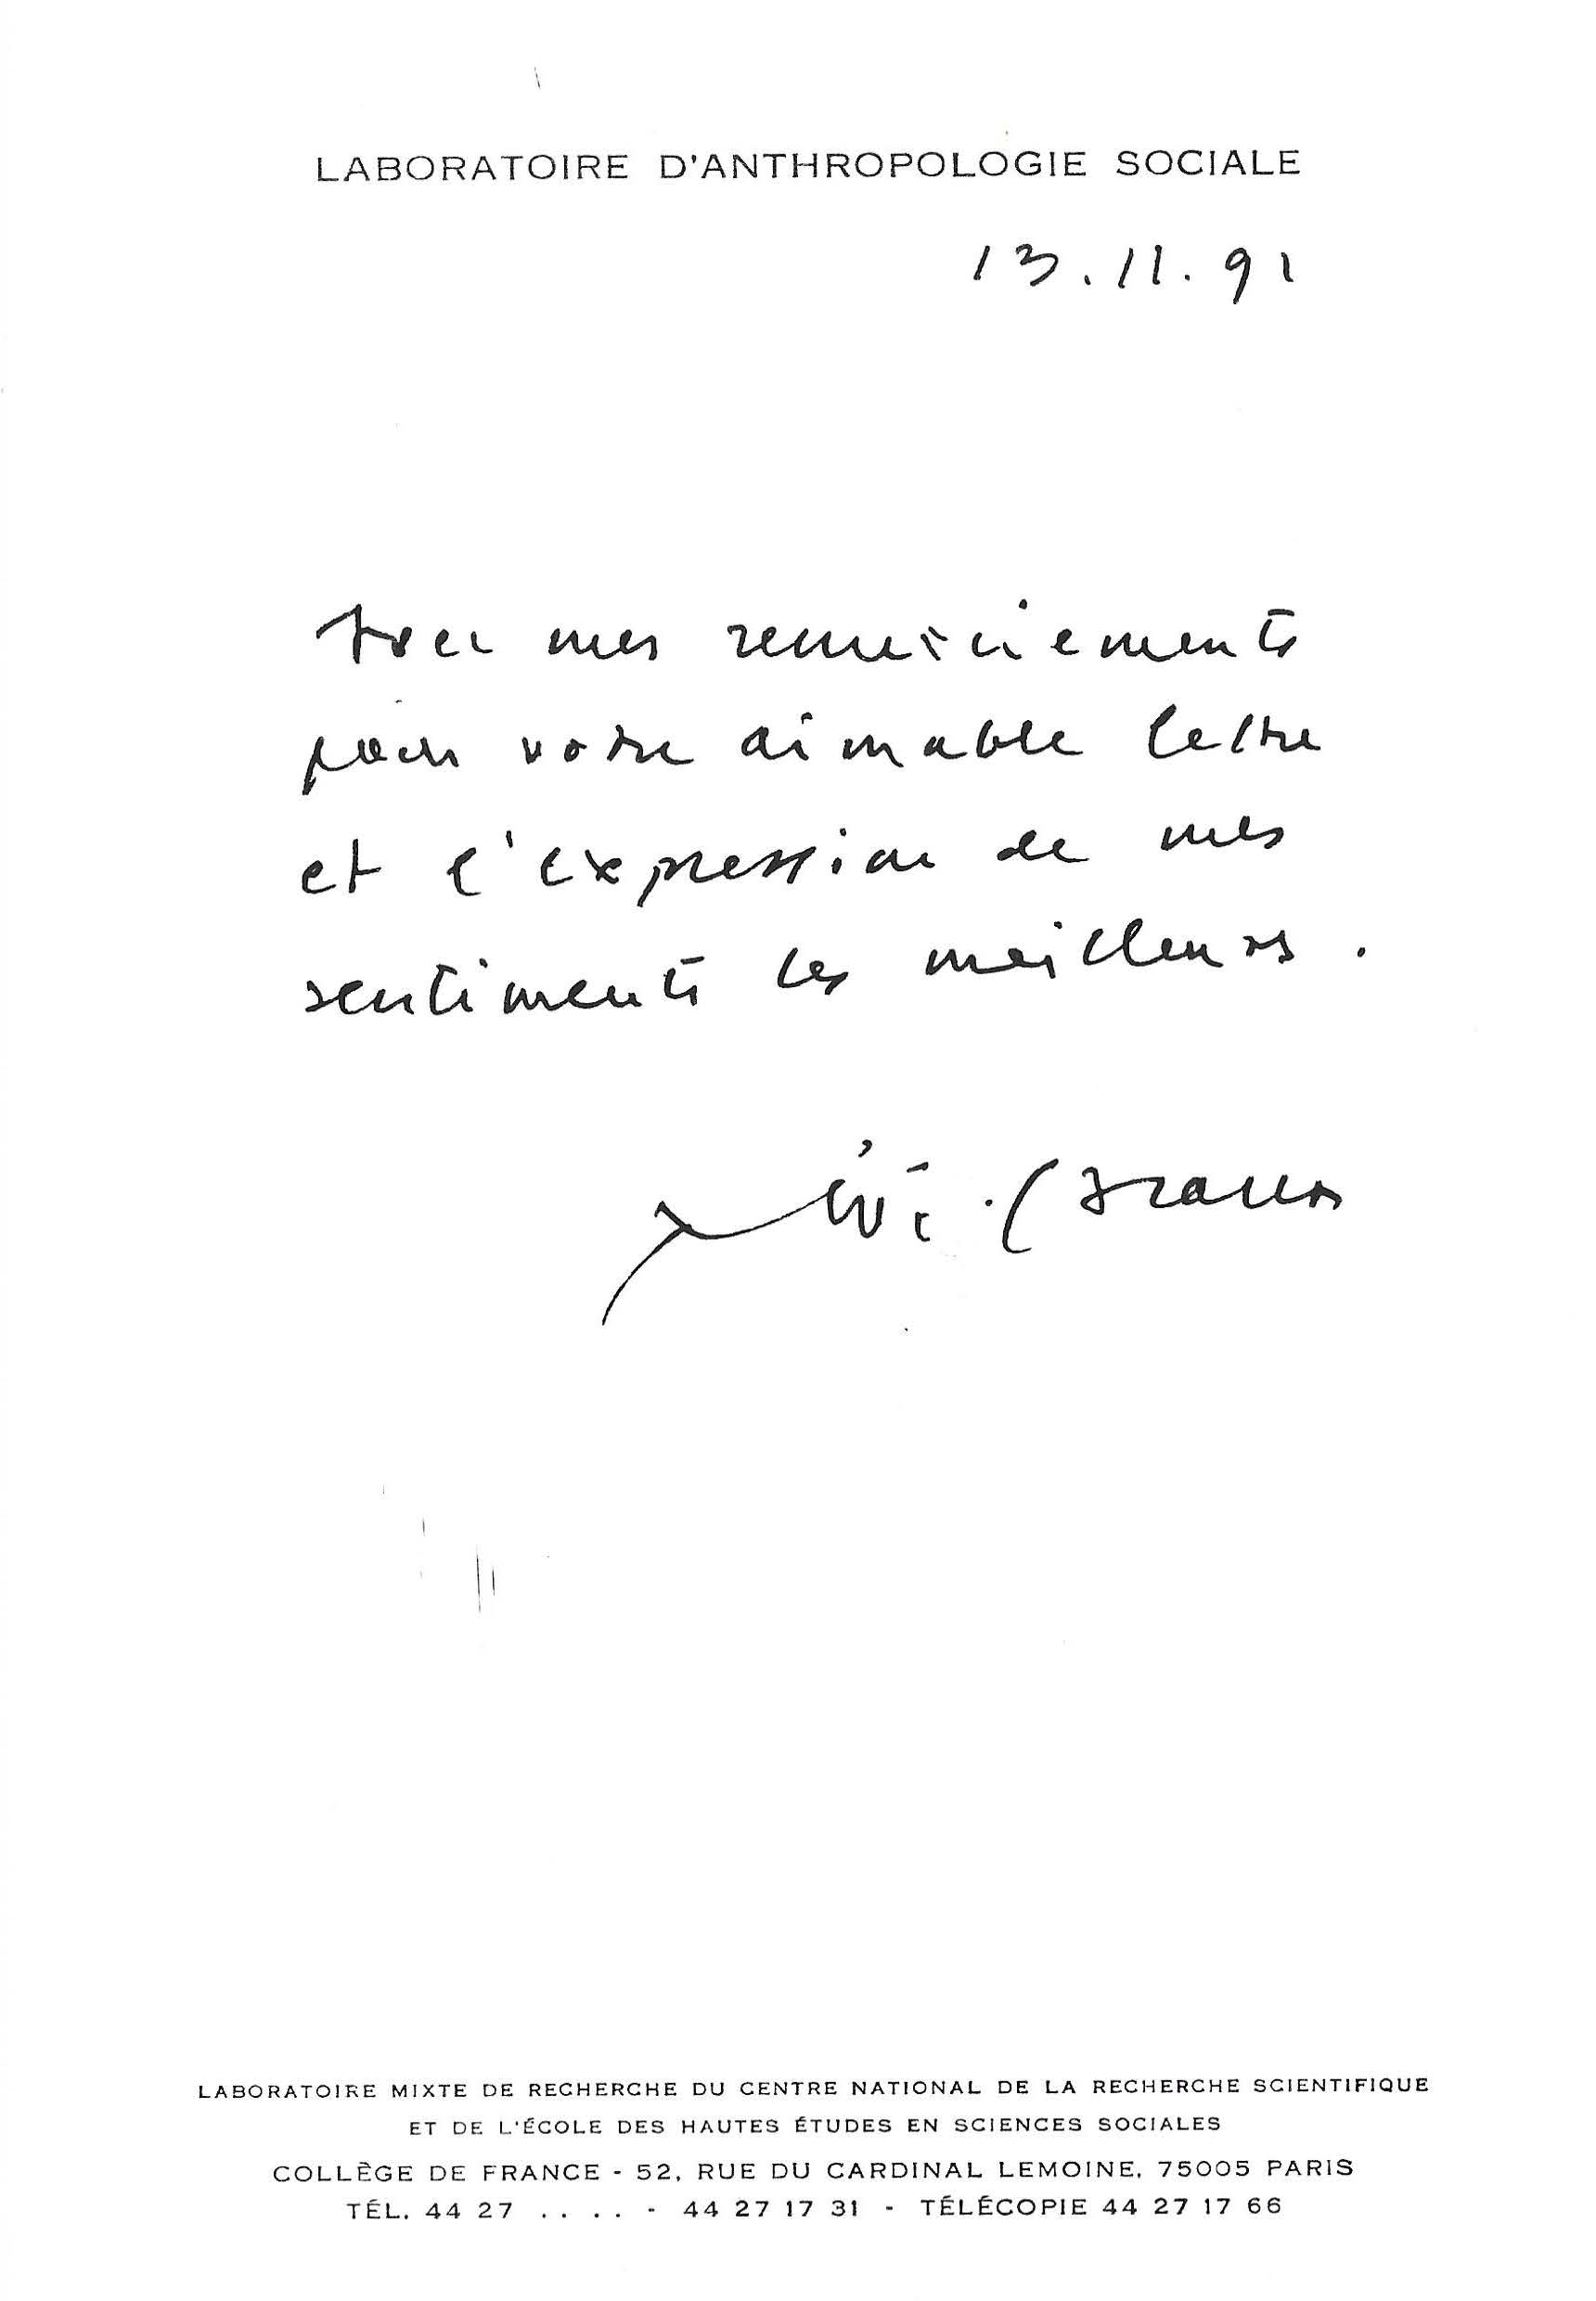 LABORATOIRE D'ANTHROPOLOGIE SOCIALE
13.11.91
Avec mes remerciements
pour votre aimable lettre
et l'expression de mes
sentiments les meilleurs.
Lévi-Strauss
LABORATOIRE MIXTE DE RECHERCHE DU CENTRE NATIONAL DE LA RECHERCHE SCIENTIFIQUE
ET DE L'ÉCOLE DES HAUTES ÉTUDES EN SCIENCES SOCIALES
COLLÈGE DE FRANCE - 52, RUE DU CARDINAL LEMOINE, 75005 PARIS
TÉL. 44 27 .... - 44 27 17 31 - TÉLÉCOPIE 44 27 17 66